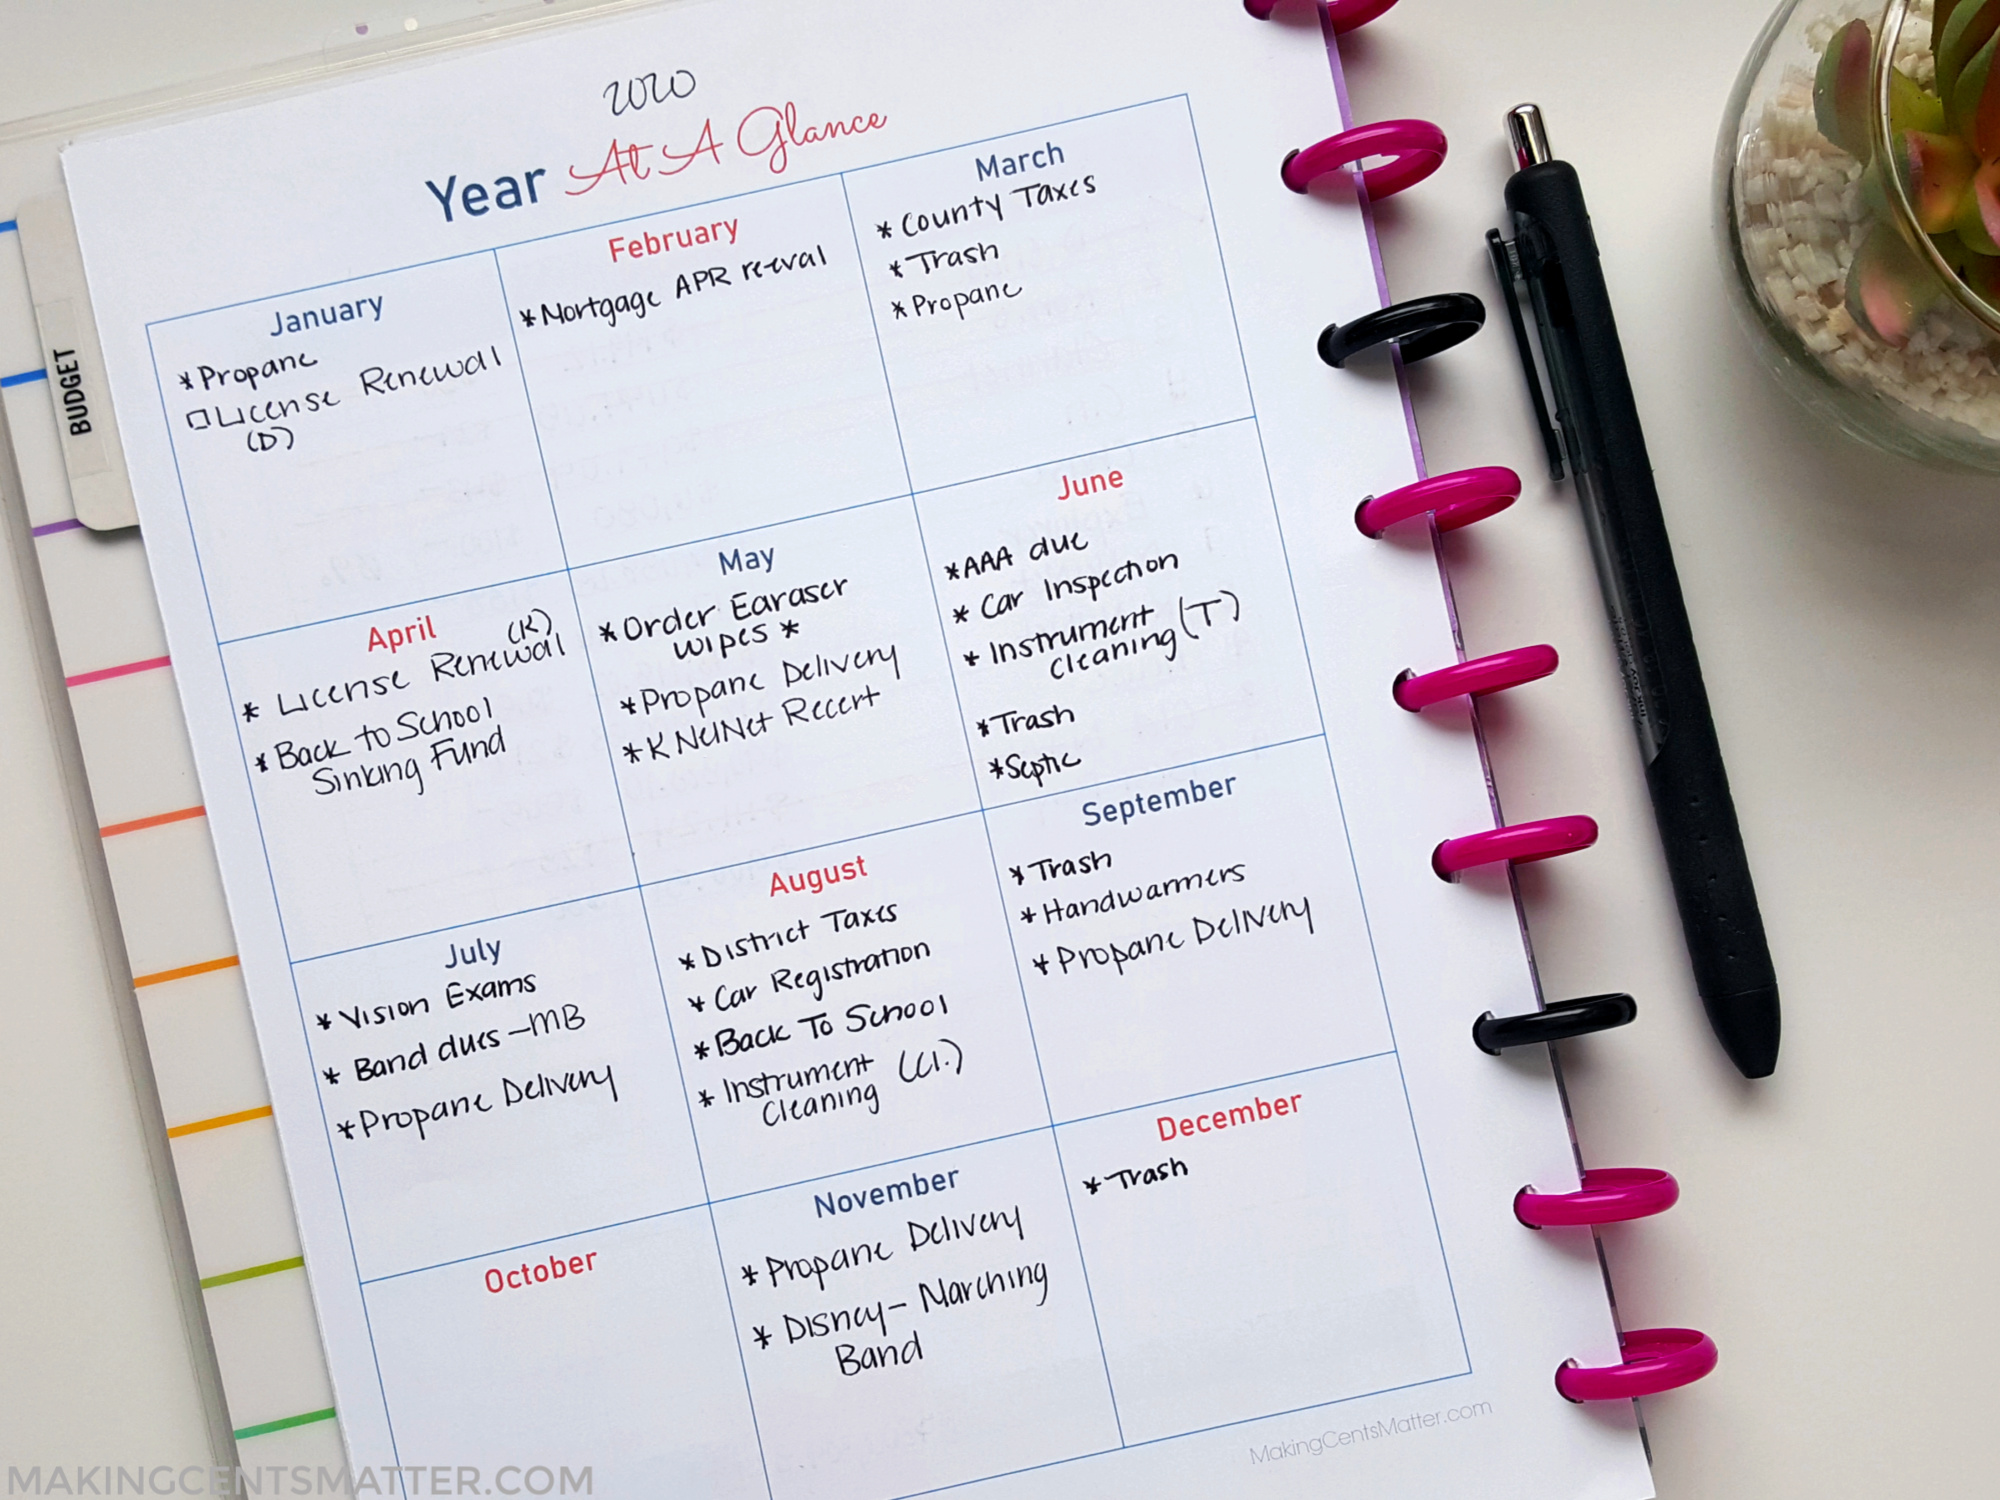 2020
Year At A Glance
BUDGET
January
*Propane
□License Renewal
(D)
February
*Mortgage APR reeval
March
*County Taxes
*Trash
*Propane
April
(K)
* License Renewal
*Back to School
Sinking Fund
May
*Order Earaser
wipes *
*Propane Delivery
*K NelNet Recert
June
*AAA due
* Car Inspection
* Instrument
cleaning (T)
*Trash
*Septic
July
*Vision Exams
* Band dues -MB
*Propane Delivery
August
*District Taxes
* Car Registration
*Back To School
* Instrument
Cleaning (Cl.)
September
*Trash
*Handwarmers
*Propane Delivery
October
November
*Propane Delivery
* Disney- Marching
Band
December
*Trash
MakingCentsMatter.com
MAKINGCENTSMATTER.COM